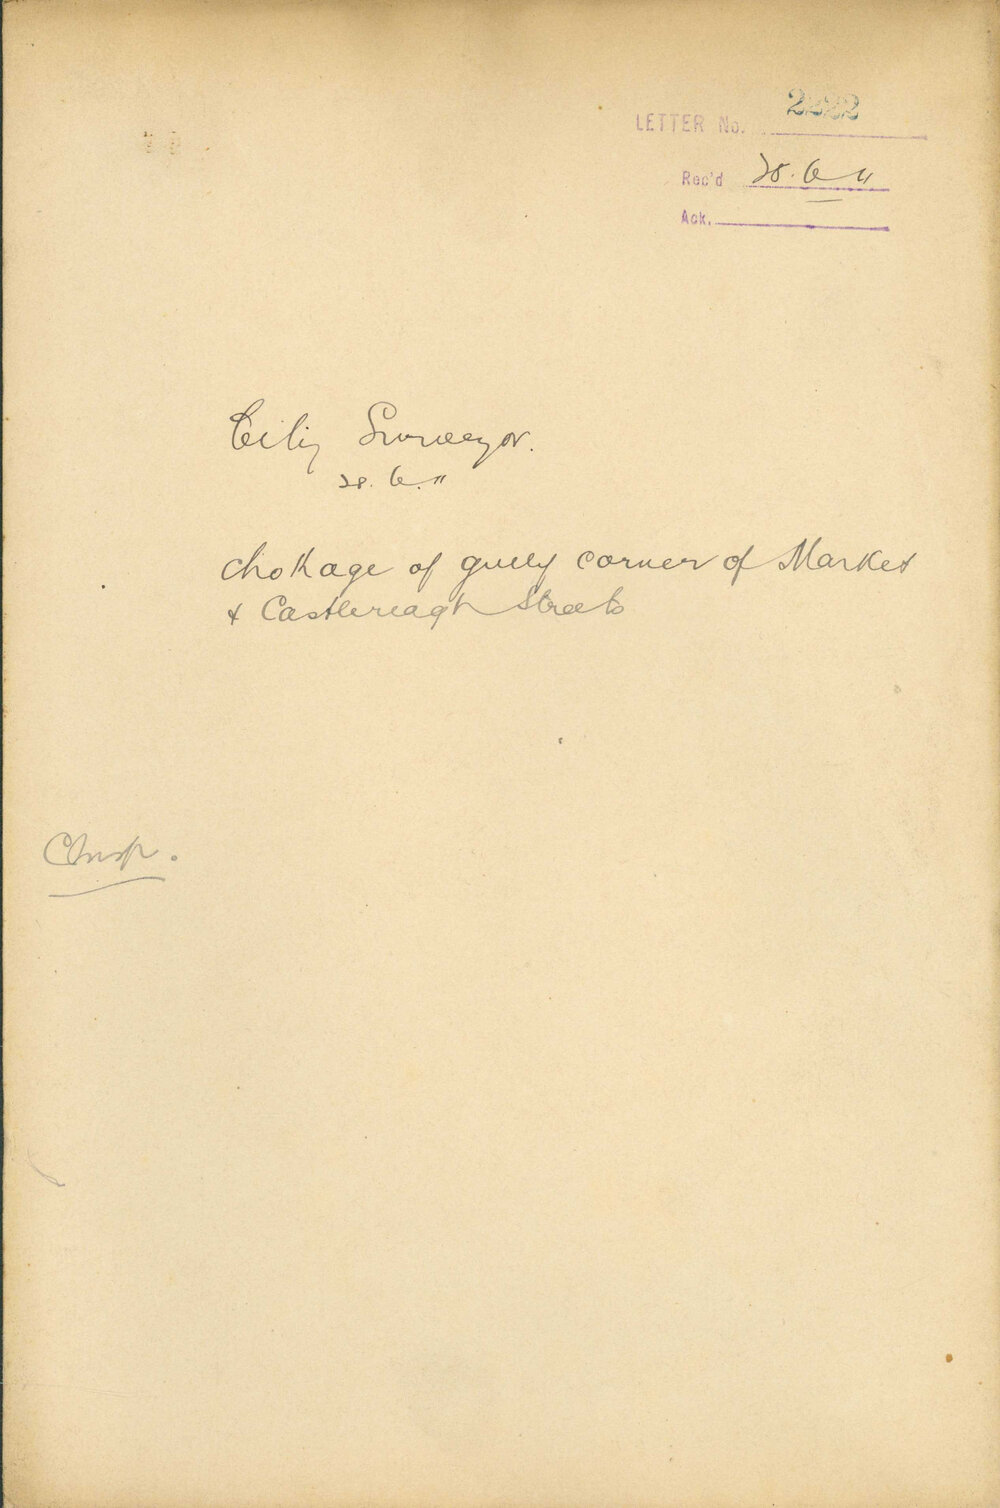 LETTER No. 2222
Rec'd 28.6 11
Ack.
City Surveyor.
28.6.11
chokage of gully corner of Market
& Castlereagh Streets